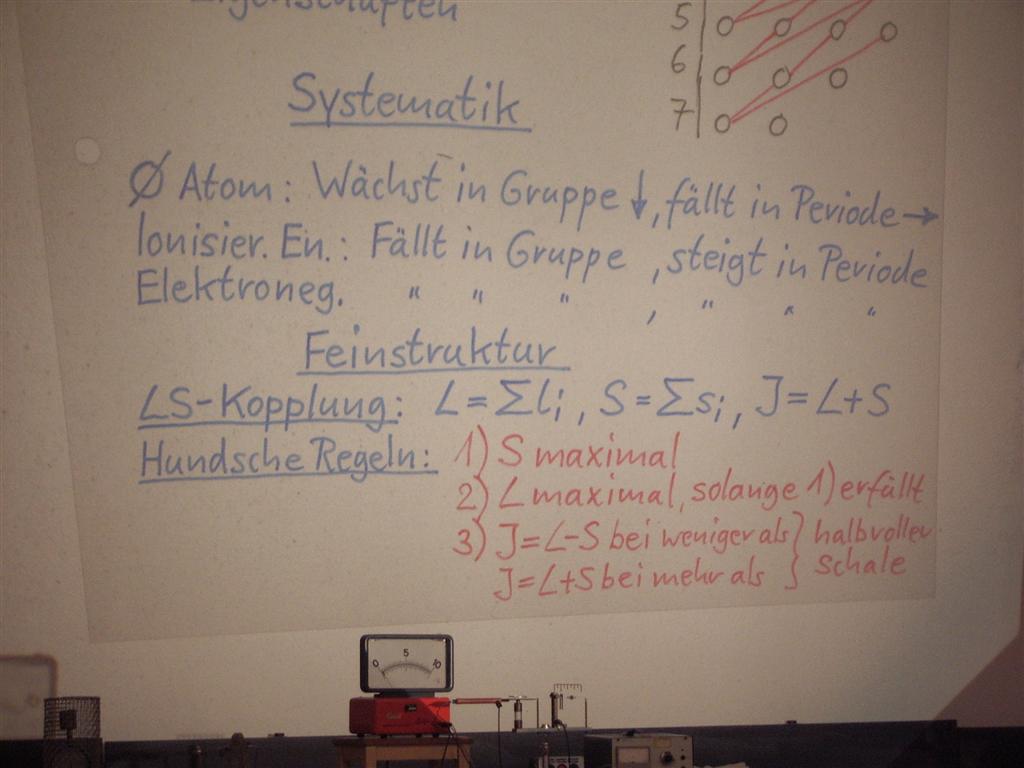 Eigenschaften
5
6
7
Systematik
Ø Atom: Wächst in Gruppe ↓, fällt in Periode →
Ionisier. En.: Fällt in Gruppe , steigt in Periode
Elektroneg. " " " , " " "
Feinstruktur
LS-Kopplung: L = Σli, S = Σsi, J = L+S
Hundsche Regeln: 1) S maximal
2) L maximal, solange 1) erfällt
3) J = L-S bei weniger als } halbvoller
J = L+S bei mehr als } Schale
0 5 10